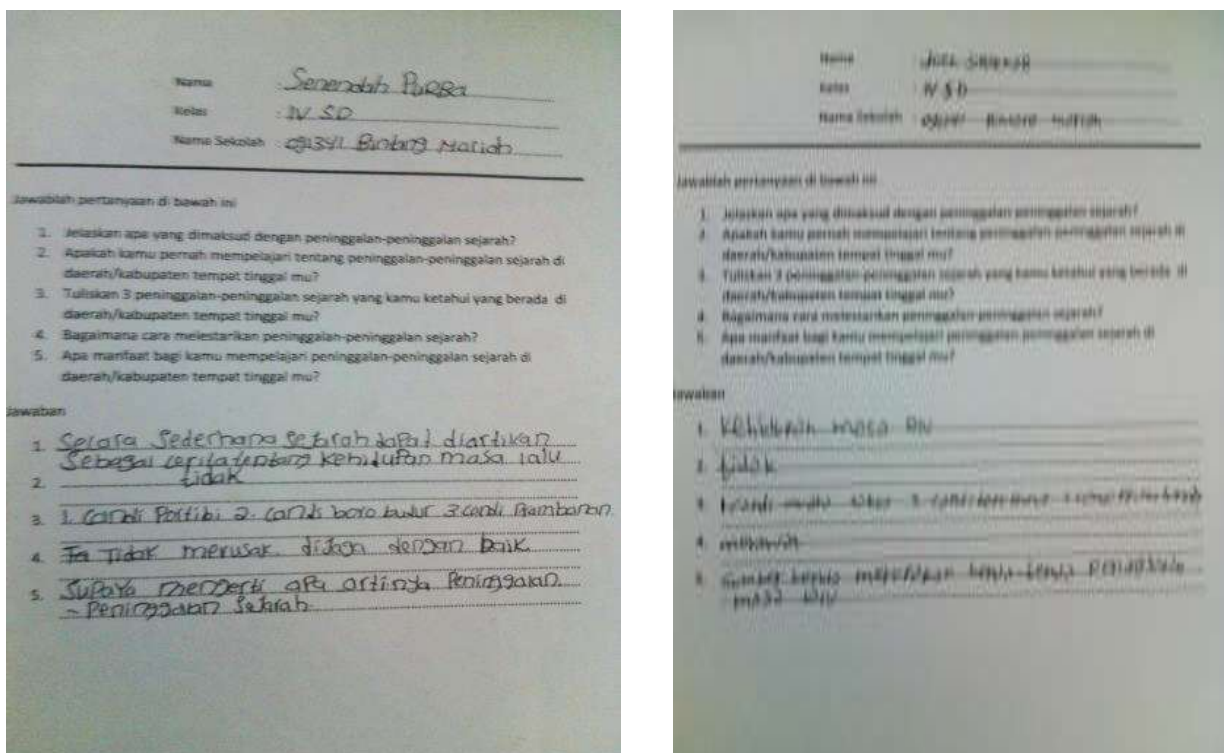 Nama : Senendah PURBA
Kelas : IV SD
Nama Sekolah : 091341 Bintang Mariah
Jawablah pertanyaan di bawah ini
1. Jelaskan apa yang dimaksud dengan peninggalan-peninggalan sejarah?
2. Apakah kamu pernah mempelajari tentang peninggalan-peninggalan sejarah di
daerah/kabupaten tempat tinggal mu?
3. Tuliskan 3 peninggalan-peninggalan sejarah yang kamu ketahui yang berada di
daerah/kabupaten tempat tinggal mu?
4. Bagaimana cara melestarikan peninggalan-peninggalan sejarah?
5. Apa manfaat bagi kamu mempelajari peninggalan-peninggalan sejarah di
daerah/kabupaten tempat tinggal mu?
Jawaban
1. Secara Sederhana Sejarah dapat diartikan
Sebagai cerita tentang kehidupan masa lalu
2. tidak
3. 1. Candi Portibi 2. Candi boro budur 3 candi Prambanan
4. Tidak merusak dijaga dengan baik
5. Supaya mengerti apa artinya Peninggalan
- Peninggalan Sejarah
Nama
Kelas : IV SD
Nama Sekolah
Jawablah pertanyaan di bawah ini
1. Jelaskan apa yang dimaksud dengan peninggalan-peninggalan sejarah?
2. Apakah kamu pernah mempelajari tentang peninggalan-peninggalan sejarah di
daerah/kabupaten tempat tinggal mu?
3. Tuliskan 3 peninggalan-peninggalan sejarah yang kamu ketahui yang berada di
daerah/kabupaten tempat tinggal mu?
4. Bagaimana cara melestarikan peninggalan-peninggalan sejarah?
5. Apa manfaat bagi kamu mempelajari peninggalan-peninggalan sejarah di
daerah/kabupaten tempat tinggal mu?
Jawaban
1. masa
2. tidak
3.
4.
5. masa